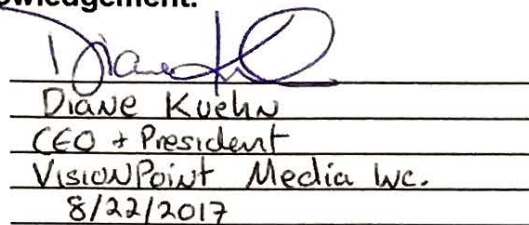 owledgement.
Diane Kuehn
CEO + President
VisionPoint Media Inc.
8/22/2017